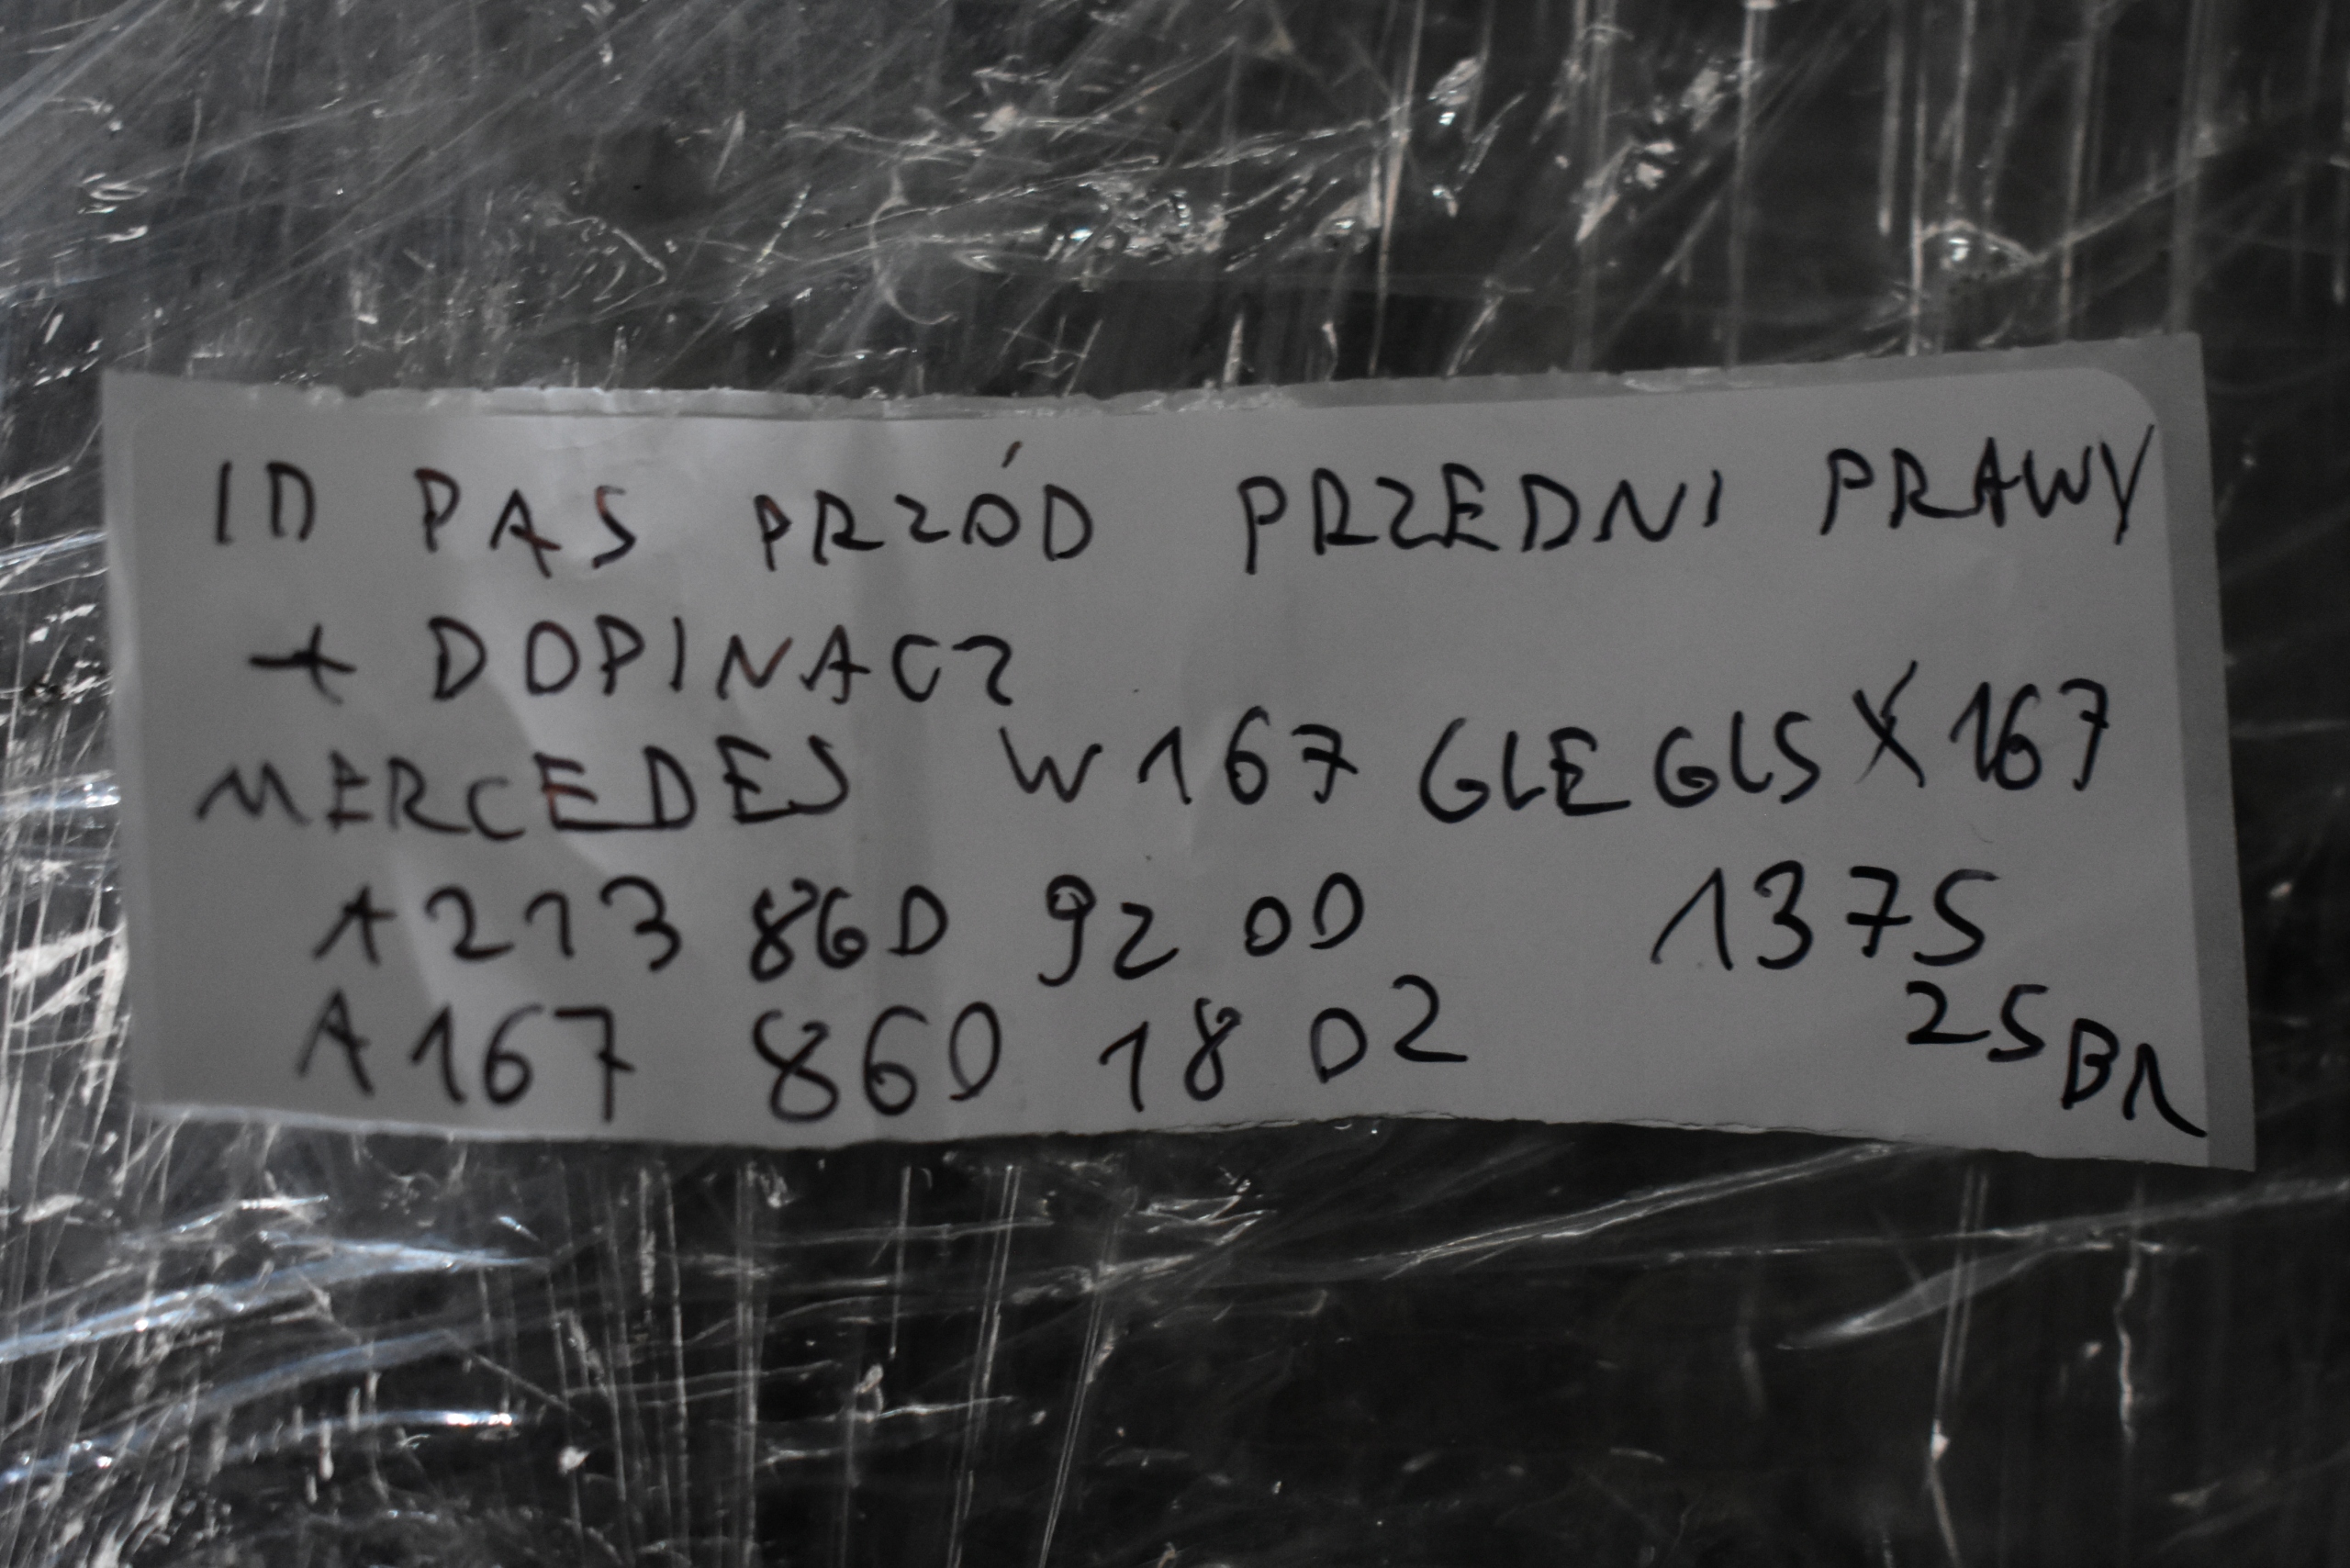 ID PAS PRZÓD PRZEDNI PRAWY
+ DOPINACZ
MERCEDES W167 GLE GLS X167
A213 860 92 00 1375
A167 860 18 02 25BR